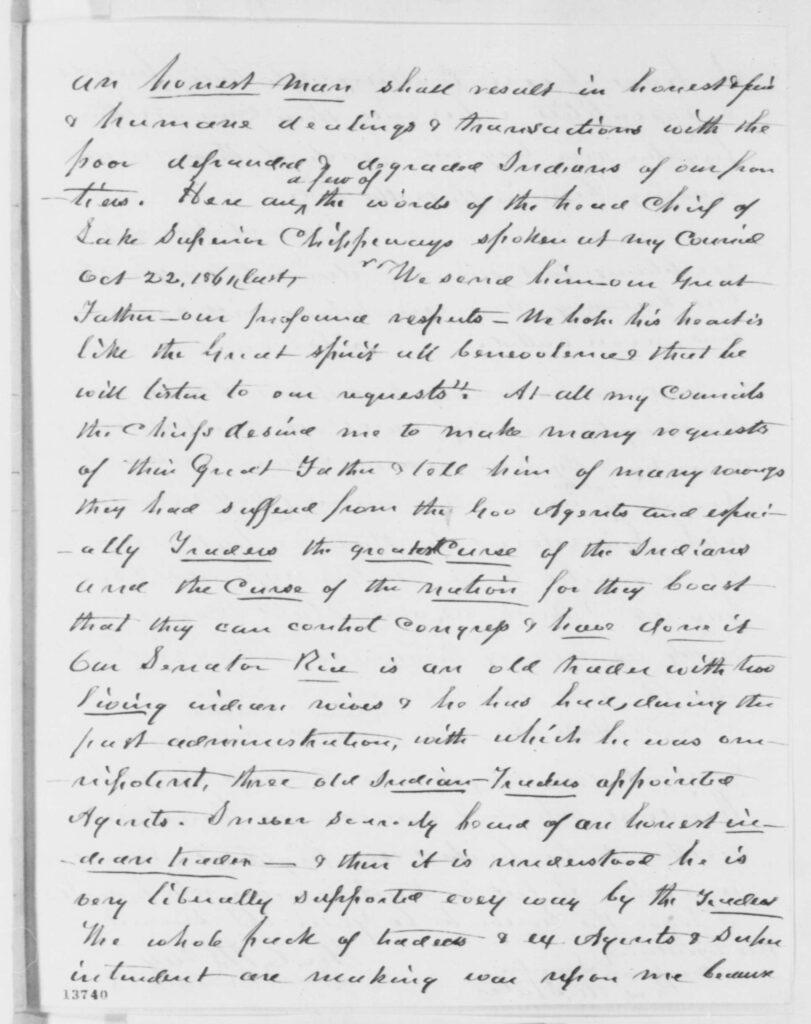 an honest man shall result in honest & fair
& humane dealings & transactions with the
poor defrauded & degraded Indians of our fron
tiers. Here are a few of the words of the head Chief of
Lake Superior Chippeways spoken at my Council
Oct 22, 1861 last, "We send him—our Great
Father—our profound respects—We hope his heart is
like the Great spirit all benevolence & that he
will listen to our requests". At all my Councils
the Chiefs desired me to make many requests
of their Great Father & tell him of many wrongs
they had suffered from the Gov Agents and espec-
-ially Traders the greatest Curse of the Indians
and the Curse of the nation for they boast
that they can control Congress & have done it
Our Senator Rice is an old trader with two
living indian wives & he has had, during the
past administration, with which he was om-
nipotent, three old Indian-Traders appointed
Agents. I never scarcely heard of an honest in-
-dian trader— & then it is understood he is
very liberally supported evey way by the Traders
The whole pack of traders & ex Agents & Super
intendent are making war upon me because
13740